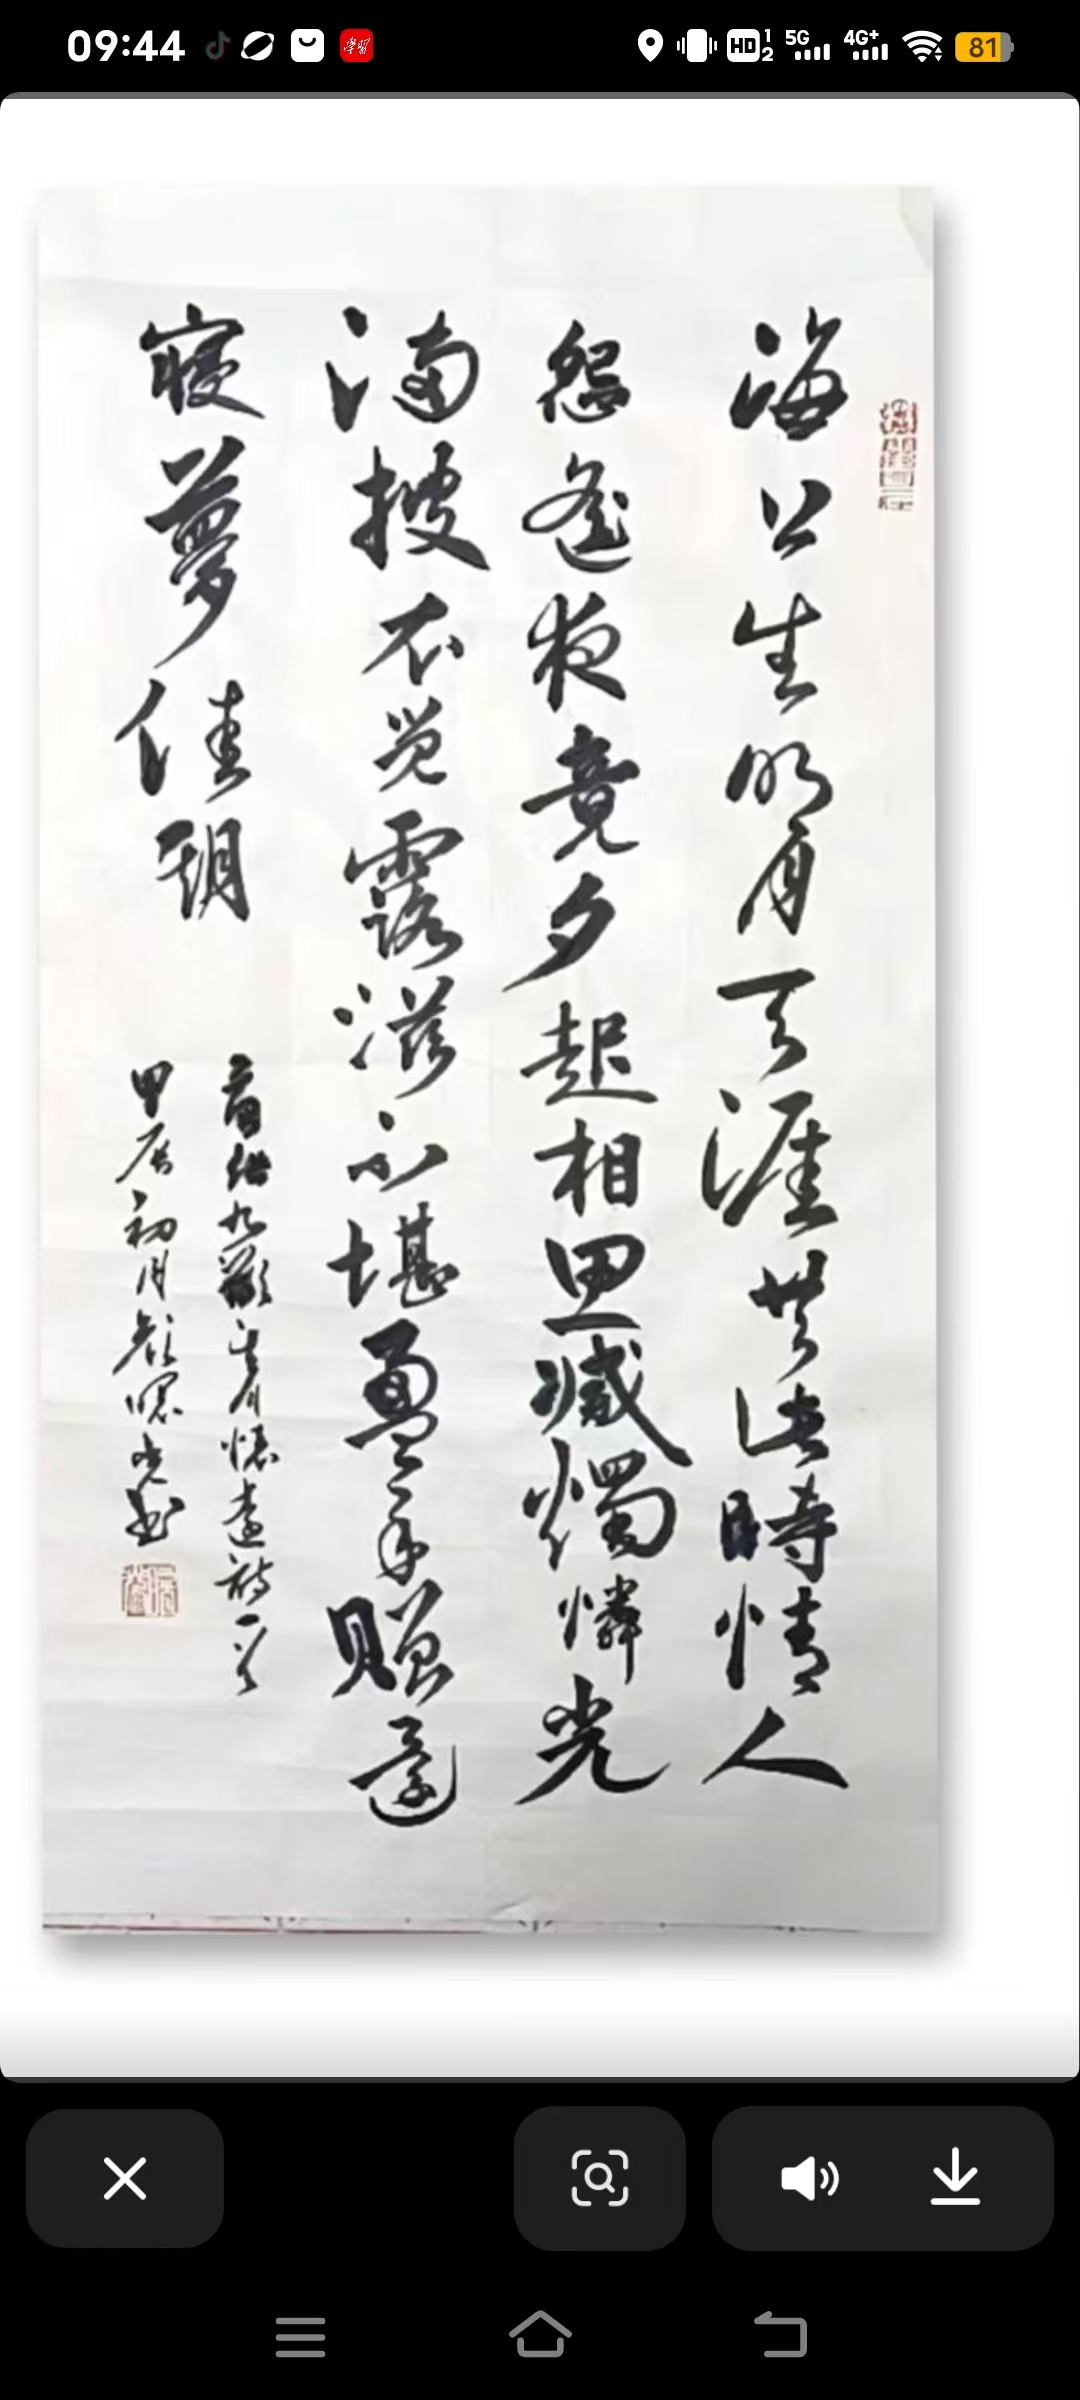 09:44 学习 HD 1 2 5G 4G+ 81
海上生明月天涯共此時情人
怨遙夜竟夕起相思滅燭憐光
滿披衣觉露滋不堪盈手贈還
寢夢佳期
九齡望月懷遠詩一首
甲辰初月 書